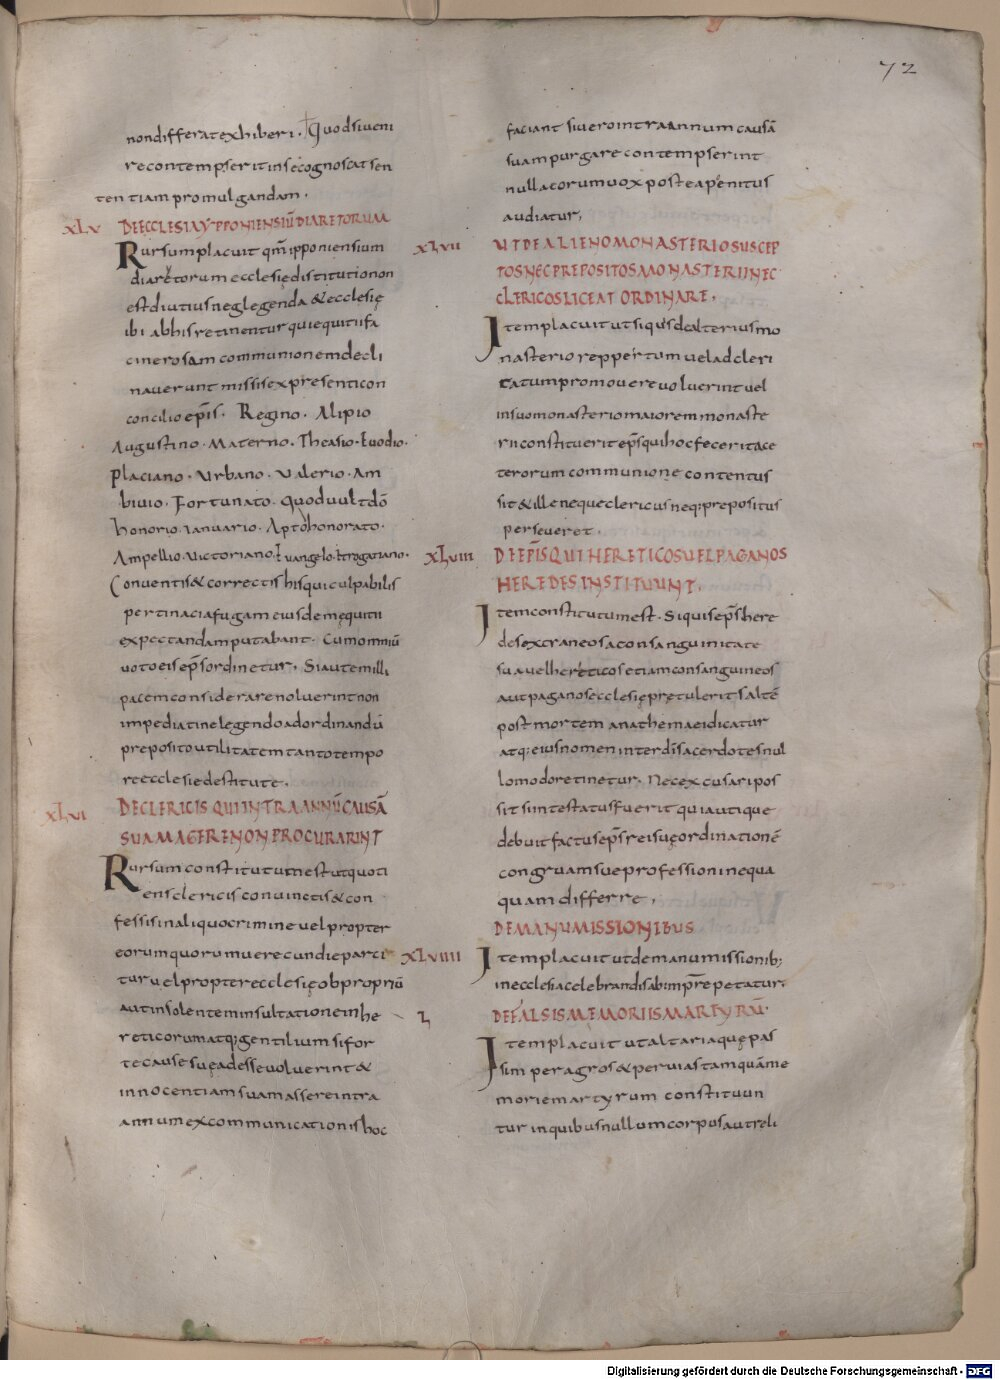 72
nondifferatexhiberi. Quodsiueni
recontempseritinsecognoscatsen
tentiampromulgandam.
XLV DEECCLESIAYPPONIENSIŪDIARETORUM
Rursumplacuit qm̄ipponiensium
diaretorum ecclesiędistitutionon
estdiutiusneglegenda &ecclesię
ibi abhisretinenturquiequitiifa
cinerosam communionemdecli
nauerunt missisexpresenticon
concilio ep̄is. Regino. Alipio
Augustino. Materno. Theasio. Euodio.
Placiano. Urbano. Ualerio. Am
biuio. Fortunato. Quoduultdō
honorio. Ianuario. Aptohonorato.
Ampellio. Uictoriano. Euangelo. Etrogatiano.
Conuentis&correctishisquiculpabilis
pertinaciafugam eiusdemęquitii
expectandamputabant. Cumomniū
uotoeisep̄sordinetur. Siautemilli
pacemconsiderarenoluerintnon
impediatinelegendoadordinandū
prepositoutilitatemtantotempo
reecclesiedestitute.
XLVI DECLERICIS QUIINTRAANNŪCAUSĀ
SUAMAGERENONPROCURARINT
Rursumconstitutumestutquoti
ensclericis conuinctis&con
fessisinaliquocrimineuelpropter
eorumquorumuerecundieparci
turuelpropterecclesięobpropriū
autinsolenteminsultationeinhe
reticorumatq;gentiliumsifor
tecausesuęadesseuoluerint&
innocentiamsuamassereintra
annumexcommunicationishoc
faciant siuerointraannumcausā
suampurgarecontempserint
nullaeorumuoxposteapenitus
audiatur;
XLVII UTDEALIENOMONASTERIOSUSCEP
TOSNECPREPOSITOSMONASTERIINEC
CLERICOSLICEAT ORDINARE.
Itemplacuitutsiquisdealteriusmo
nasterioreppertumueladcleri
catumpromouereuoluerintuel
insuomonasteriomaioremmonaste
riiconstitueritep̄squihocfeceritace
terorumcommunione contentus
sit&illenequeclericusneq;prepositus
perseueret.
XLVIII DEEP̄ISQUIHERETICOSUELPAGANOS
HEREDESINSTITUUNT.
Itemconstitutumest. Siquisep̄shere
desextraneosaconsanguinitate
suauelhereticosetiamconsanguineos
autpaganosecclesiępretuleritsaltē
postmortem anathemaeidicatur
atq;eiusnomeninterdīsacerdotesnul
lomodoretinetur. Necexcusaripos
sitsintestatusfuerit quiautique
debuitfactusep̄sreisuęordinationē
congruamsueprofessioninequa
quamdifferre.
DEMANUMISSIONIBUS
XLVIIII Itemplacuitutdemanumissionib;
inecclesiacelebrandisabimp̄repetatur.
DEFALSISMEMORIISMARTYRŪ.
L Itemplacuitutaltariaquępas
sim peragros&peruiastamquāme
moriemartyrum constituun
tur inquibusnullumcorpusautreli
Digitalisierung gefördert durch die Deutsche Forschungsgemeinschaft - DFG